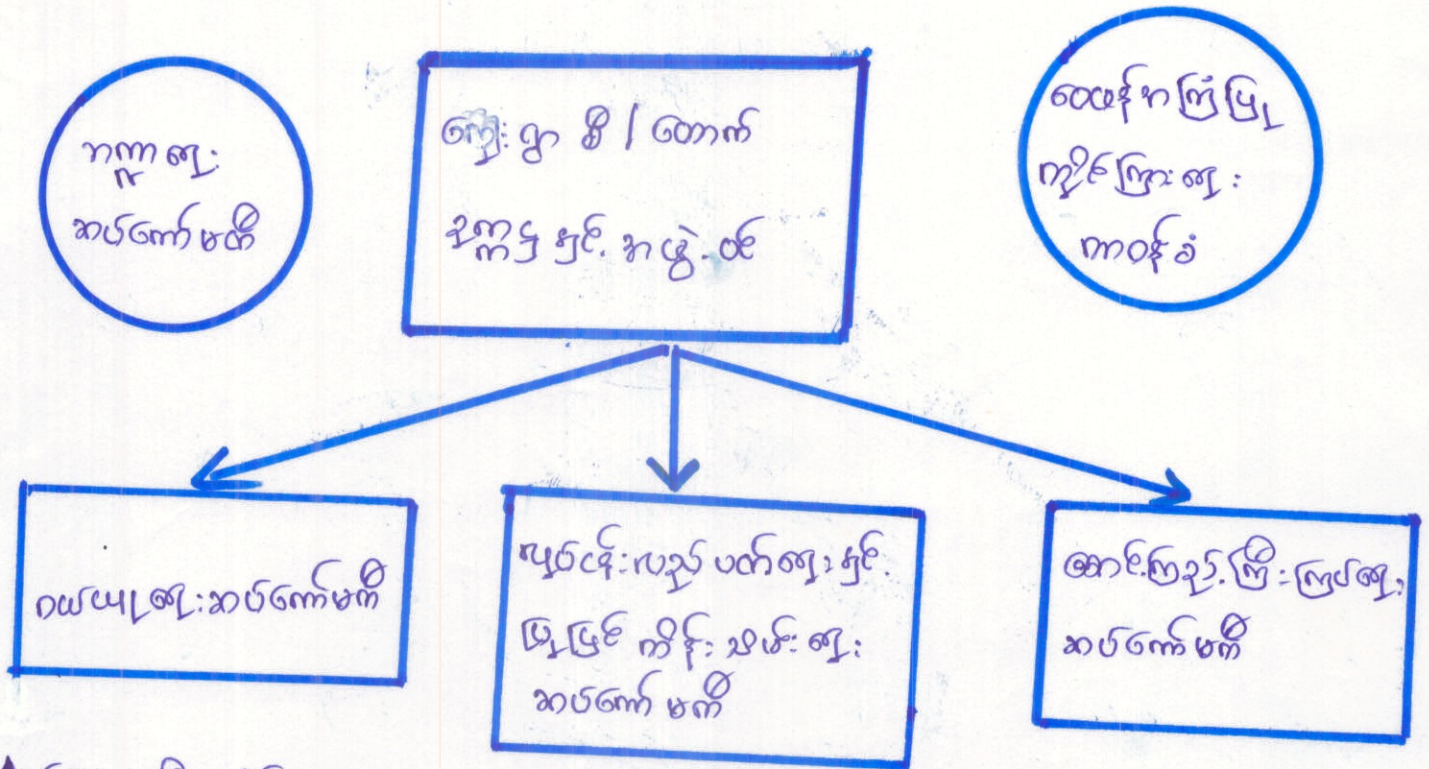 ဘဏ္ဍာရေး
ဆပ်ကော်မတီ
ကျေးရွာ စီ / ထောက်
ဥက္ကဌ နှင့် အဖွဲ့ဝင်
ဝေဖန်အကြံပြု
တိုင်ကြားရေး
တာဝန်ခံ
ဝယ်ယူရေးဆပ်ကော်မတီ
လုပ်ငန်းလည်ပတ်ရေးနှင့်
ပြုပြင် ထိန်းသိမ်းရေး
ဆပ်ကော်မတီ
စောင့်ကြည့်ကြီးကြပ်ရေး
ဆပ်ကော်မတီ